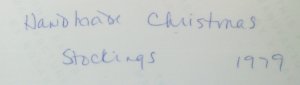 Handmade Christmas
Stockings 1979